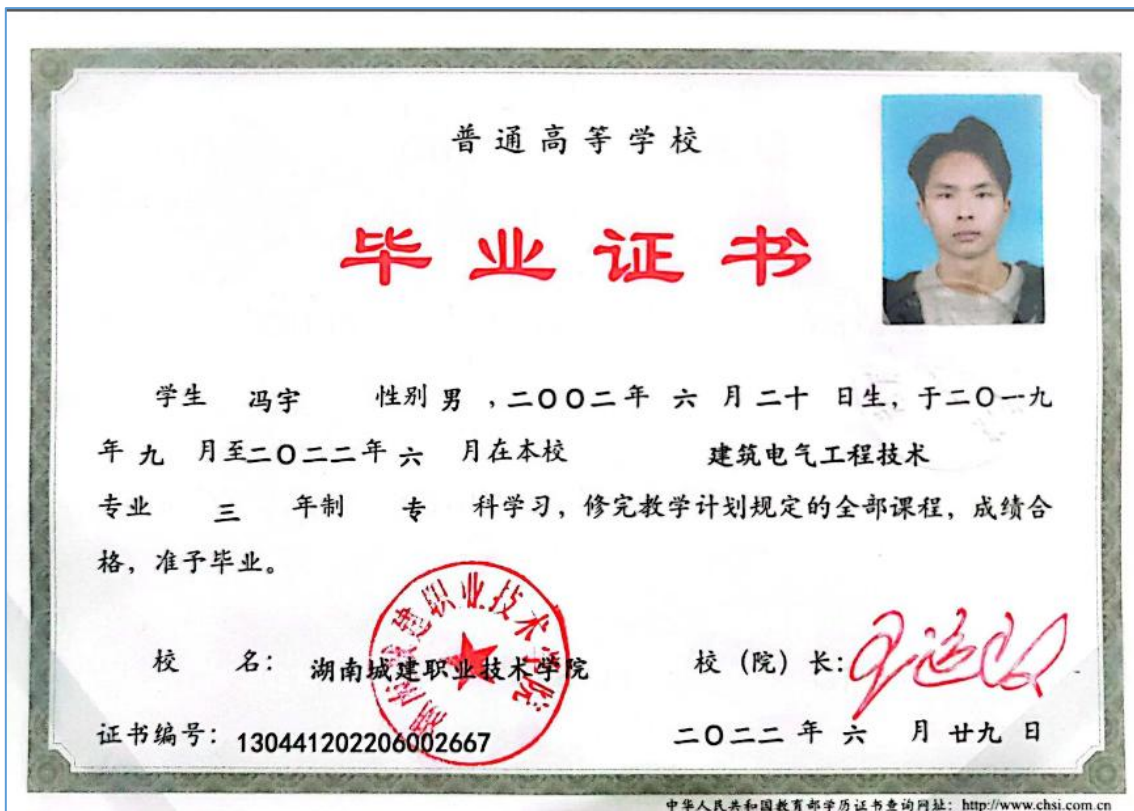 普通高等学校
毕业证书
学生 冯宇 性别 男 ，二〇〇二年 六 月 二十 日生，于二〇一九
年 九 月至二〇二二年 六 月在本校 建筑电气工程技术
专业 三 年制 专 科学习，修完教学计划规定的全部课程，成绩合
格，准予毕业。
校 名： 湖南城建职业技术学院
湖南城建职业技术学院
校（院）长：
证书编号：130441202206002667
二〇二二 年 六 月 廿九 日
中华人民共和国教育部学历证书查询网址：http://www.chsi.com.cn